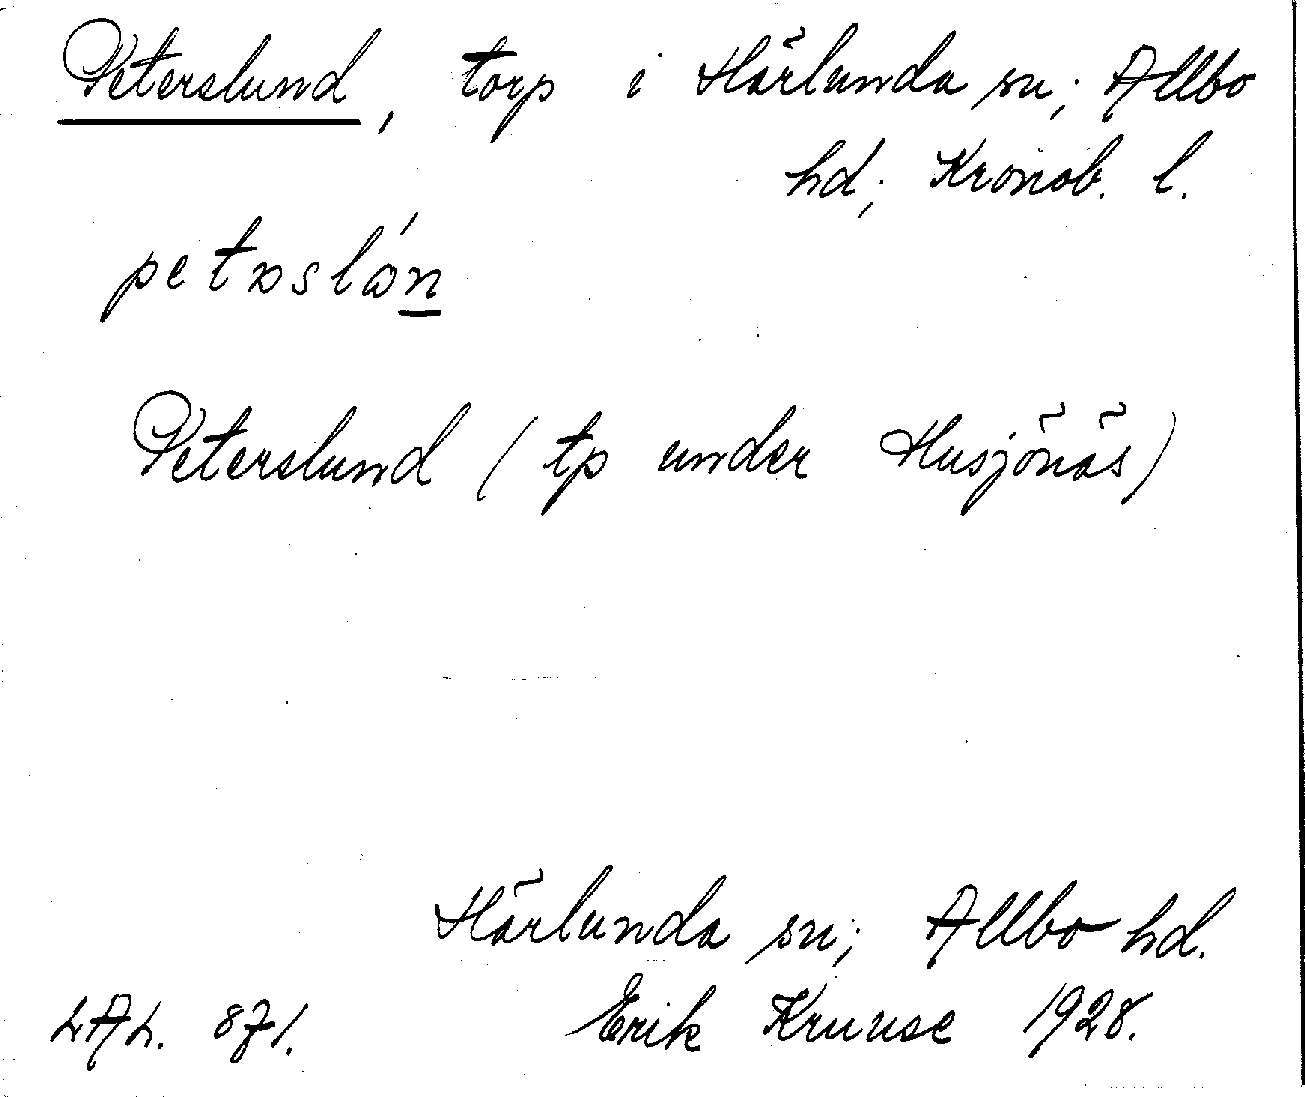 Peterslund, torp i Härlunda sn; Allbo
hd; Kronob. l.
Peterslund (tp under Husjönäs)
Härlunda sn; Allbo hd.
LAL. 871. Erik Kruuse 1928.